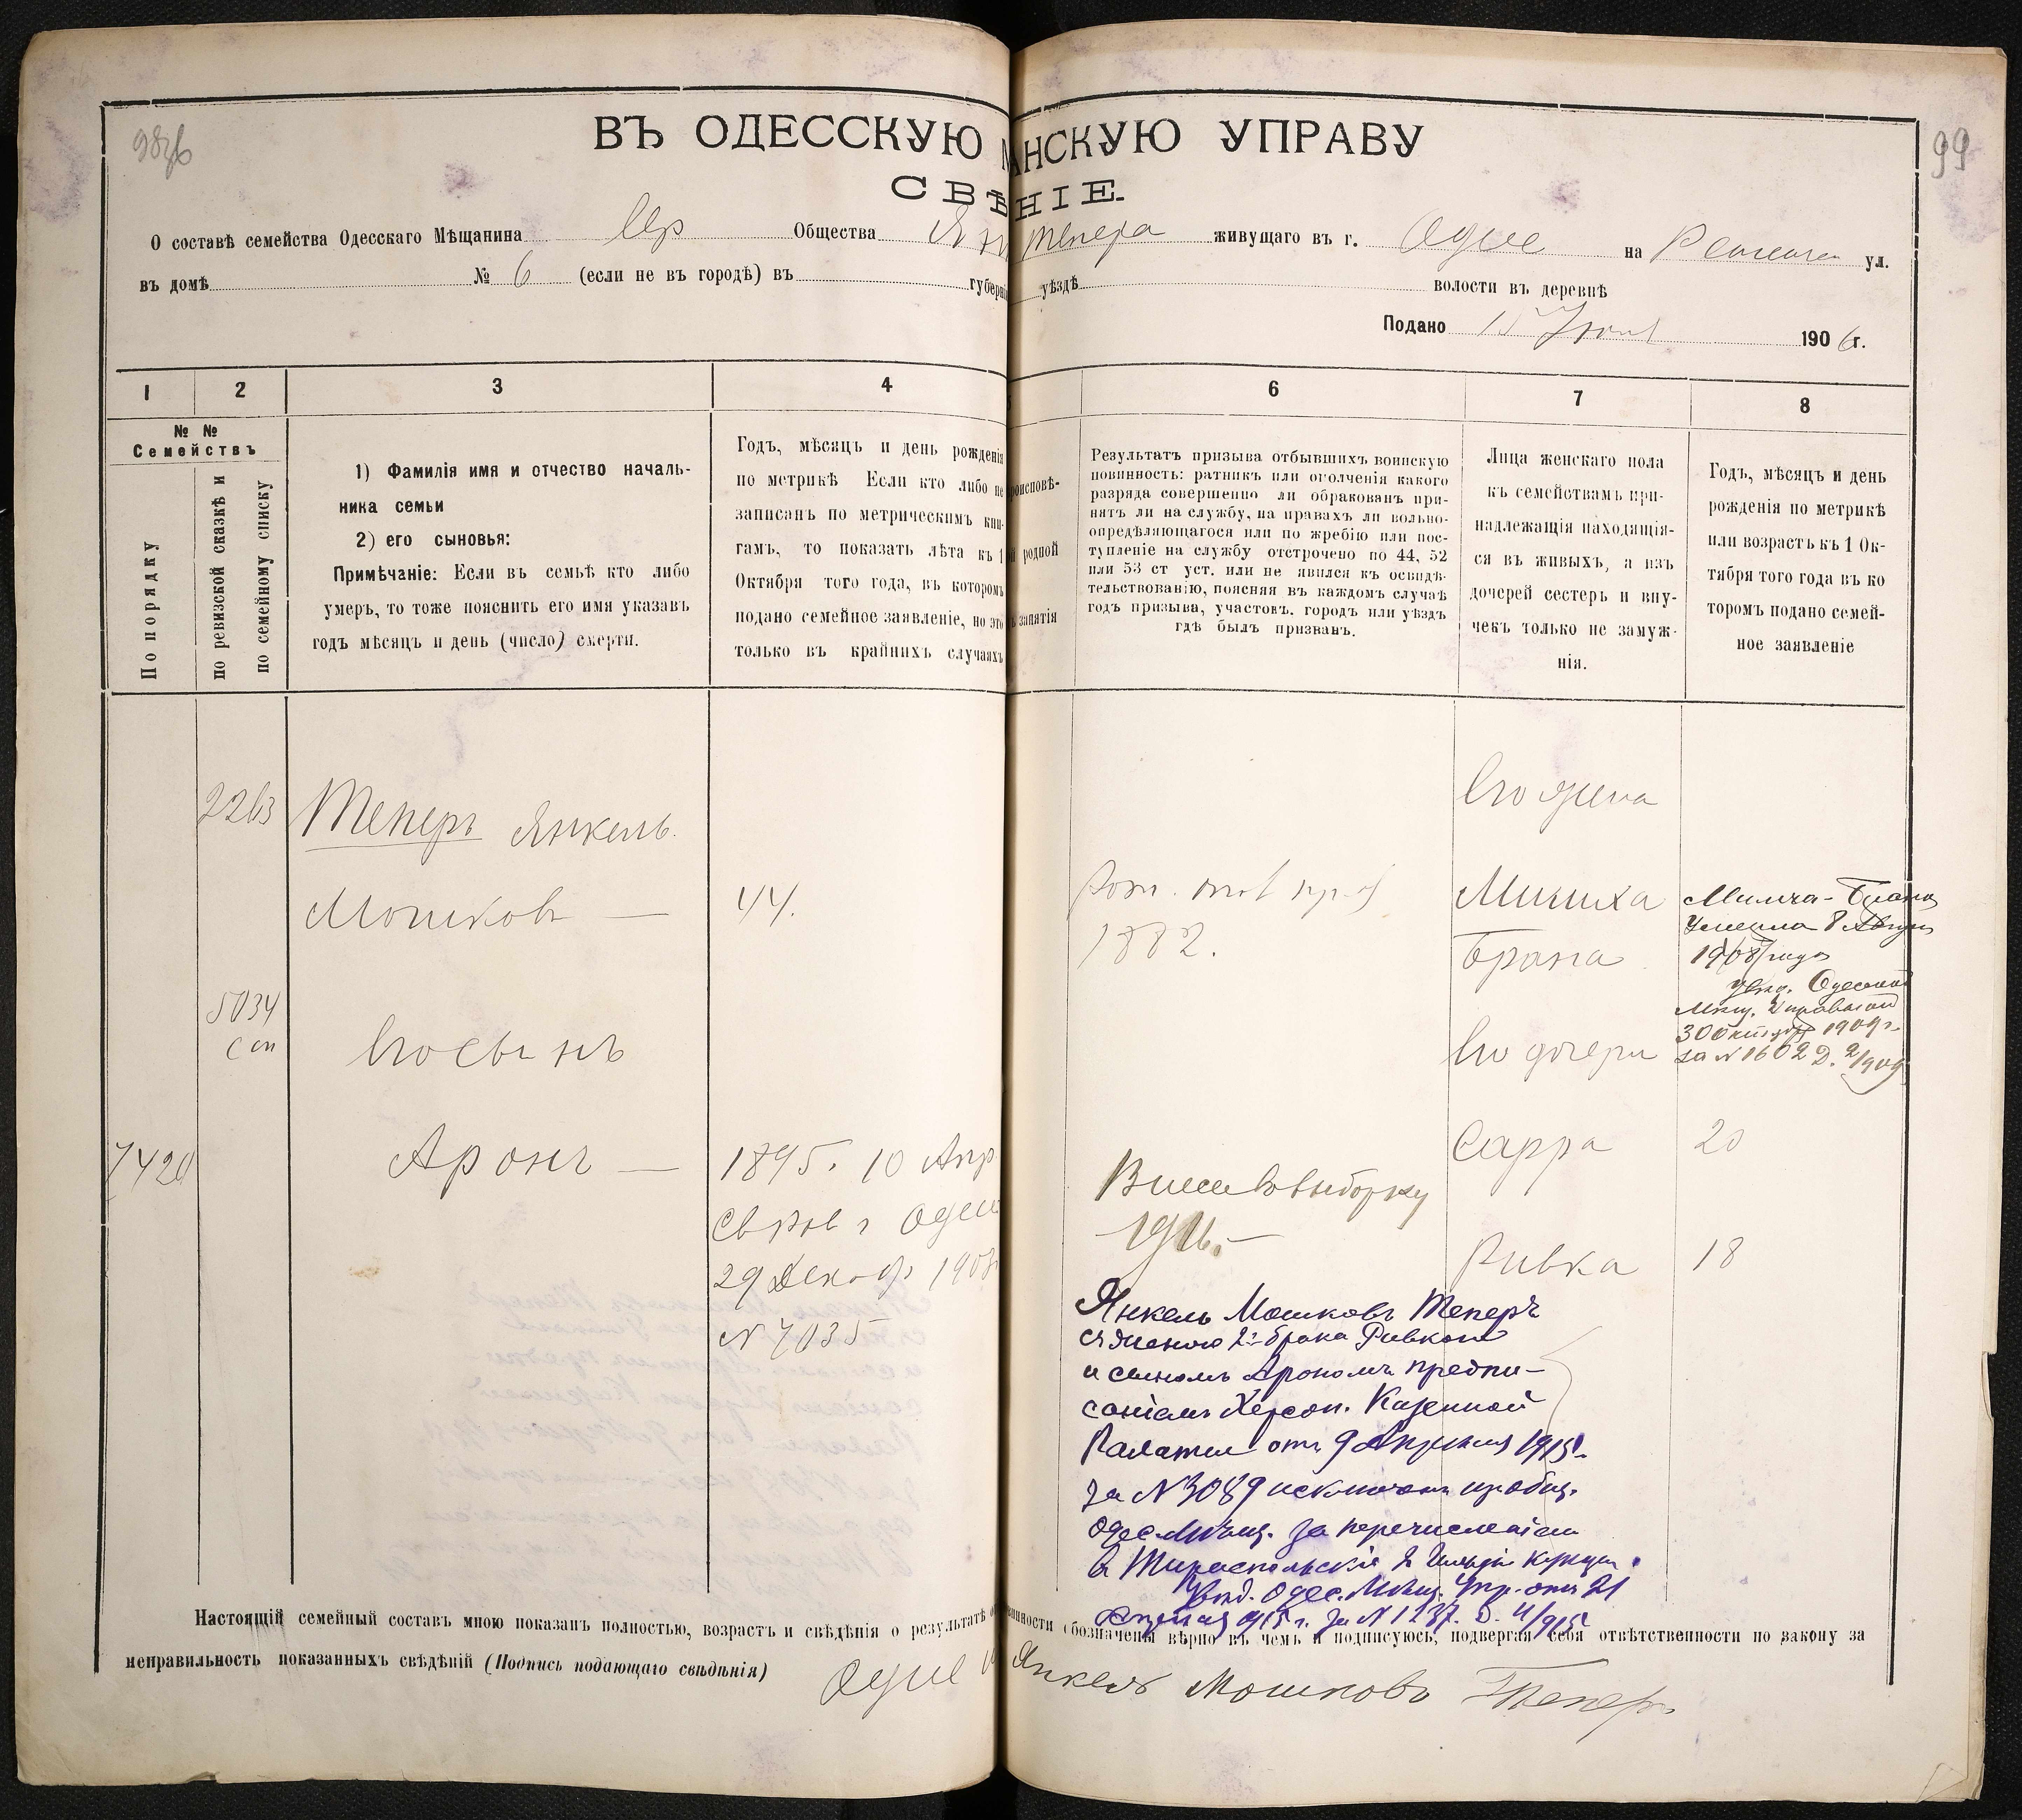 99
ВЪ ОДЕССКУЮ М АНСКУЮ УПРАВУ
СВѢ НІЕ.
О составѣ семейства Одесскаго Мѣщанина Евр Общества Ян Тепера живущаго въ г. Одессе на ул.
въ домѣ № 6 (если не въ городѣ) въ губерні уѣздѣ волости въ деревнѣ
Подано 15 Іюня 1906 г.
1 2 3 4 5 6 7 8
№ №
Семействъ
По порядку
по ревизской сказкѣ и
по семейному списку
1) Фамилія имя и отчество началь-
ника семьи
2) его сыновья:
Примѣчаніе: Если въ семьѣ кто либо
умеръ, то тоже пояснить его имя указавъ
годъ мѣсяцъ и день (число) смерти.
Годъ, мѣсяцъ и день рожденія
по метрикѣ Если кто либо не
записанъ по метрическимъ кни-
гамъ, то показать лѣта къ 1
Октября того года, въ которомъ
подано семейное заявленіе, но это
только въ крайнихъ случаяхъ
роисповѣ-
й родной
ъ занятія
Результатъ призыва отбывшихъ воинскую
повинность: ратникъ или ополченія какого
разряда совершенно ли обракованъ при-
нятъ ли на службу, на правахъ ли вольно-
опредѣляющагося или по жребію или пос-
тупленіе на службу отстрочено по 44, 52
или 53 ст уст. или не явился къ освидѣ-
тельствованію, поясняя въ каждомъ случаѣ
годъ призыва, участокъ. городъ или уѣздъ
гдѣ былъ призванъ.
Лица женскаго пола
къ семействамъ при-
надлежащія находящія-
ся въ живыхъ, а изъ
дочерей сестеръ и вну-
чекъ только не замуж-
нія.
Годъ, мѣсяцъ и день
рожденія по метрикѣ
или возрастъ къ 1 Ок-
тября того года въ ко
торомъ подано семей-
ное заявленіе
2263 Теперъ Янкель
Мошковъ — 44.
1882.
5034
сп
Его сынъ
7420 Аронъ — 1895. 10 Апр
29 Декабр 1903
N 7035
Внесен в выборку
1916. —
Его жена
Милиха
Брана
Его дочери
Сарра 20
Ривка 18
Милча-Брана
Умерла 8 Август
1908 года
увед. Одесской
Мѣщ. Управы от
30 Октября 1909 г.
за N 1602 Д. 2/909
Янкель Мошковъ Теперъ
съ женою 2го брака Ривкою
и сыномъ Арономъ предпи-
саніемъ Херсон. Казенной
Палаты отъ 9 Апреля 1915 г.
за N 3089 исключенъ из общ.
Одес. Мѣщ. за перечисленіем
в Тираспольскіе 2 Гильдіи купцы.
Увѣд. Одес. Мѣщ. Упр. отъ 21
Апреля 915 г. за N 1237. Д. 4/915
Настоящій семейный составъ мною показанъ полностью, возрастъ и свѣдѣнія о результатѣ о инности обозначены вѣрно въ чемъ и подписуюсь, подвергая себя отвѣтственности по закону за
неправильность показанныхъ свѣдѣній (Подпись подающаго свѣдѣнія) Янкель Мошковъ Теперъ